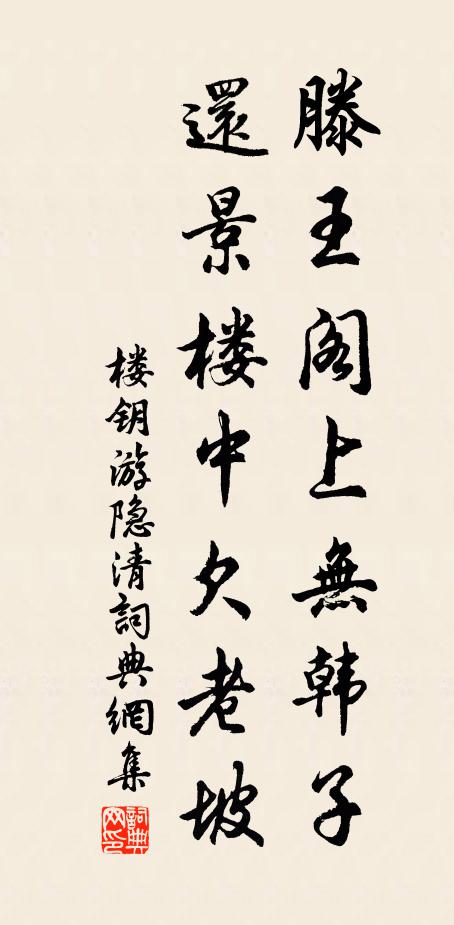 滕王阁上無韩子
還景楼中欠老坡
楼钥游隐清詞典網集
詞典网印